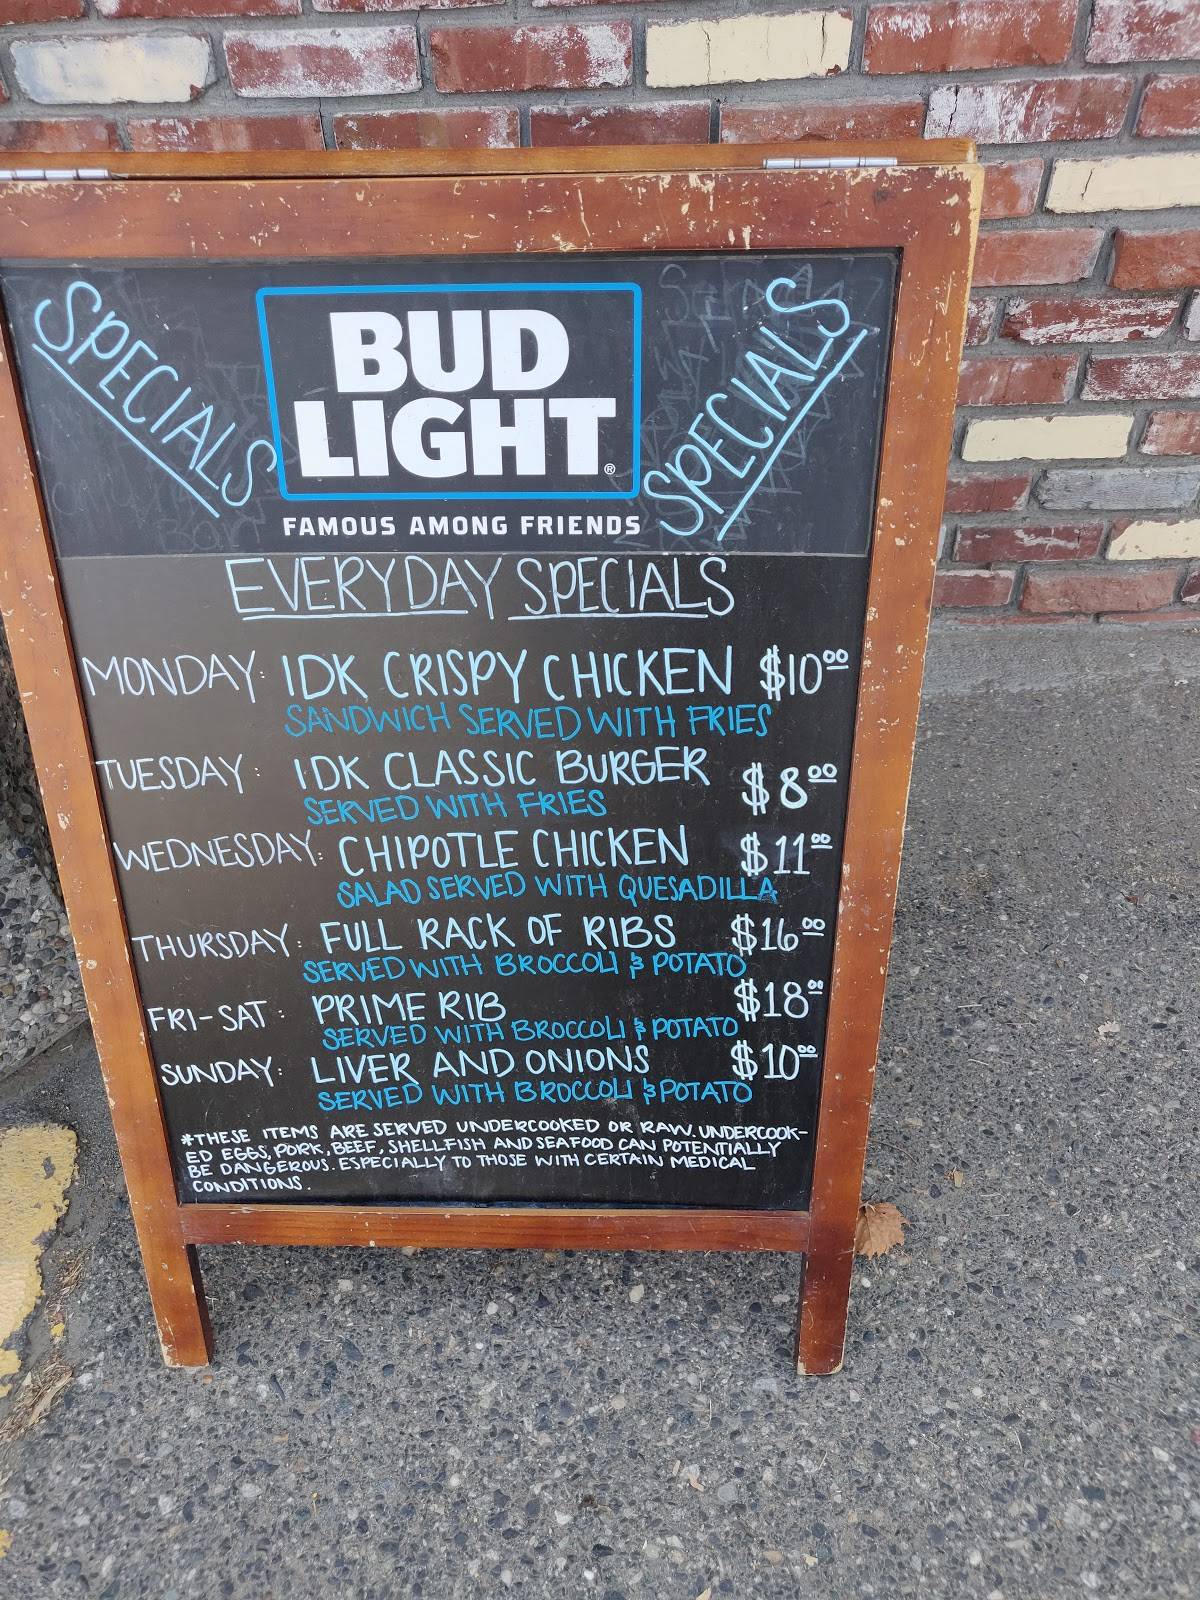 SPECIALS
BUD
LIGHT®
FAMOUS AMONG FRIENDS
SPECIALS
EVERYDAY SPECIALS
MONDAY: IDK CRISPY CHICKEN $10⁰⁰
SANDWICH SERVED WITH FRIES
TUESDAY: IDK CLASSIC BURGER $8⁰⁰
SERVED WITH FRIES
WEDNESDAY: CHIPOTLE CHICKEN $11⁰⁰
SALAD SERVED WITH QUESADILLA
THURSDAY: FULL RACK OF RIBS $16⁰⁰
SERVED WITH BROCCOLI & POTATO
FRI-SAT: PRIME RIB $18⁰⁰
SERVED WITH BROCCOLI & POTATO
SUNDAY: LIVER AND ONIONS $10⁰⁰
SERVED WITH BROCCOLI & POTATO
*THESE ITEMS ARE SERVED UNDERCOOKED OR RAW. UNDERCOOK-
ED EGGS, PORK, BEEF, SHELLFISH AND SEAFOOD CAN POTENTIALLY
BE DANGEROUS. ESPECIALLY TO THOSE WITH CERTAIN MEDICAL
CONDITIONS.